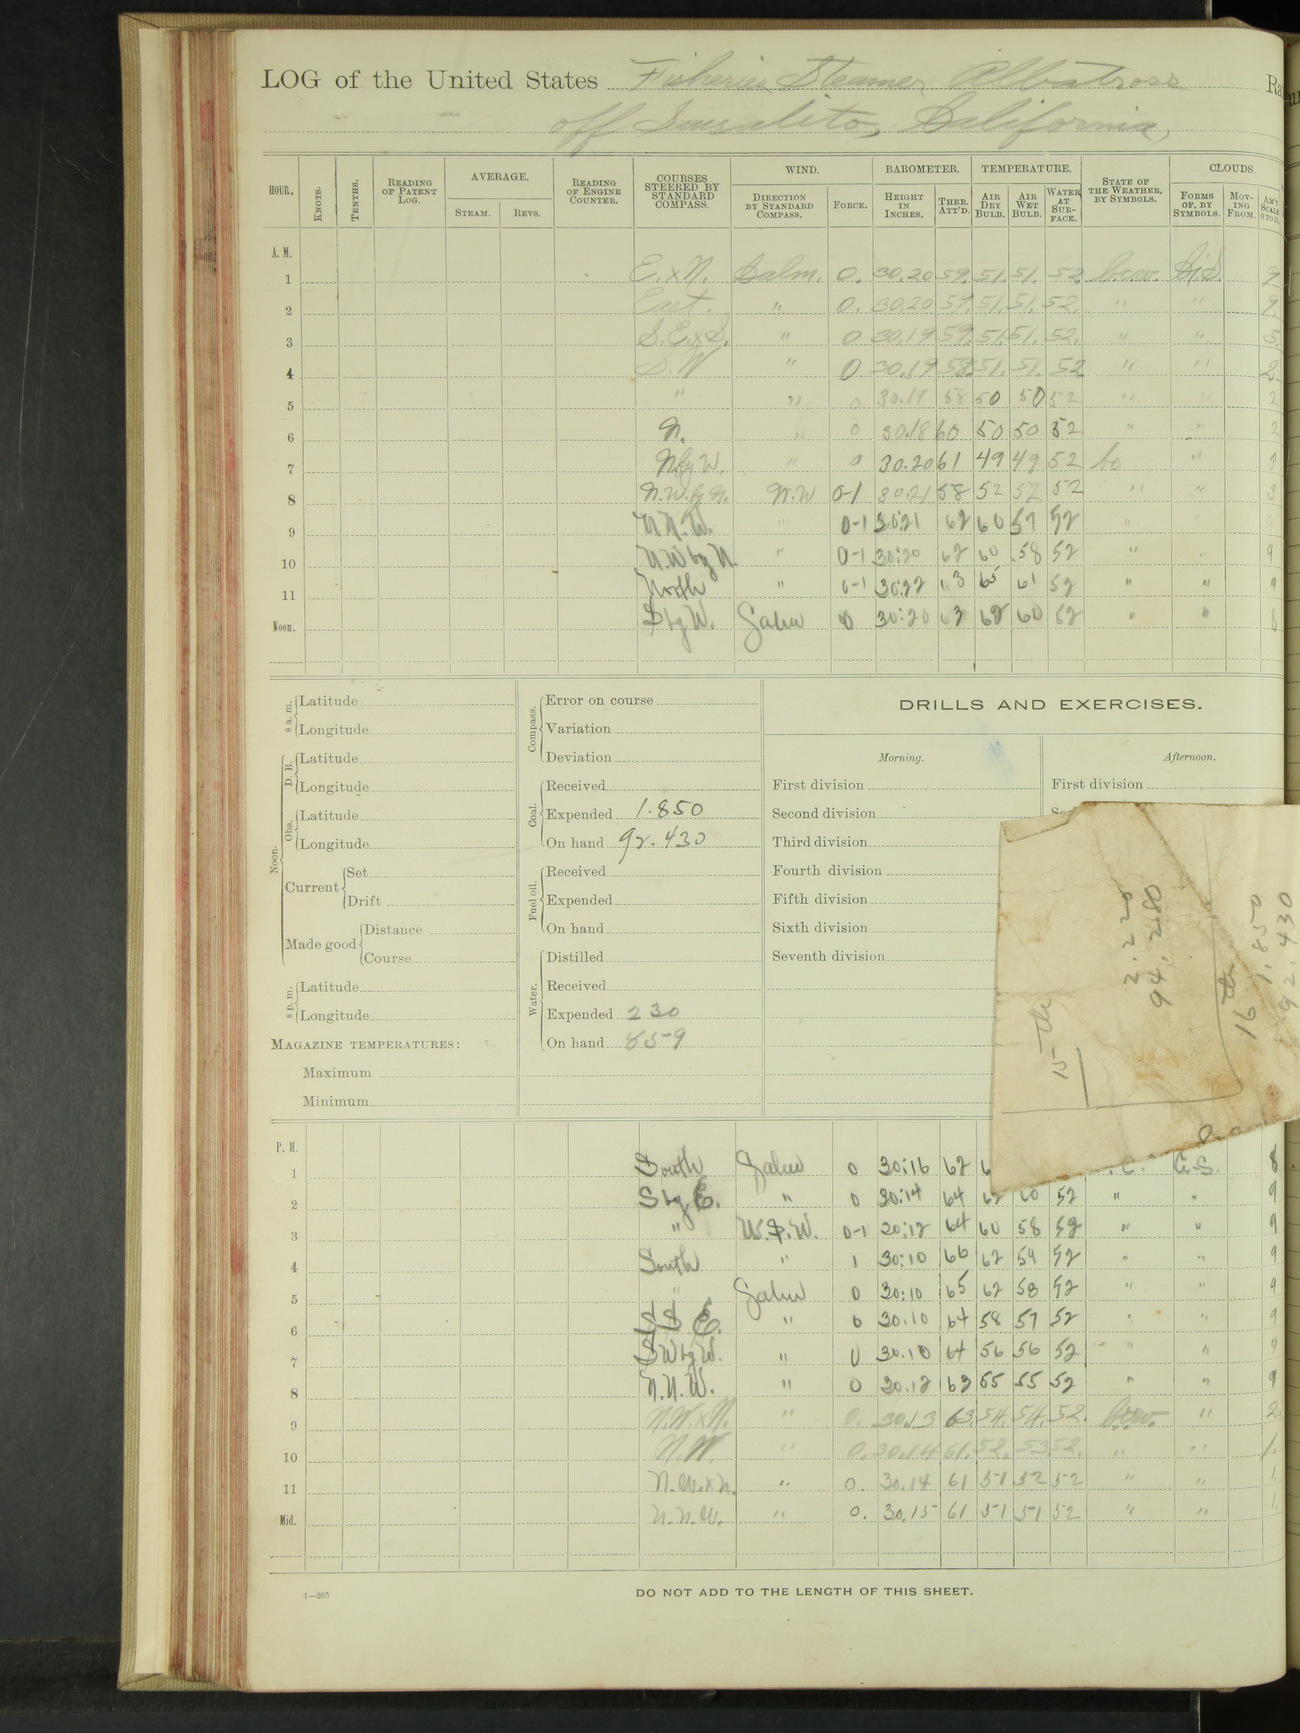 LOG of the United States Fisheries Steamer Albatross Ra
off Sausalito, California,
HOUR. KNOTS. TENTHS. READING OF PATENT LOG. AVERAGE. STEAM. REVS. READING OF ENGINE COUNTER. COURSES STEERED BY STANDARD COMPASS. WIND. DIRECTION BY STANDARD COMPASS. FORCE. BAROMETER. HEIGHT IN INCHES. THER. ATT'D. TEMPERATURE. AIR DRY BULB. AIR WET BULB. WATER AT SURFACE. STATE OF THE WEATHER, BY SYMBOLS. CLOUDS. FORMS OF, BY SYMBOLS. MOVING FROM. AM'T SCALE 0 TO 10
A. M.
1 E.xN. Calm. 0. 30.20 59. 51. 51. 52 b.c.w. Ci.S. 9.
2 East. " 0. 30.20 59. 51. 51. 52. " " 9.
3 S.E.xS. " 0 30.19 59. 51. 51. 52. " " 5.
4 S.W " 0 30.19 58. 51. 51. 52 " " 2.
5 " " 0 30.19 58 50 50 52 " " 2
6 N. " 0 30.18 60 50 50 52 " " 2
7 N by W. " 0 30.20 61 49 49 52 bc " 3
8 N.W. by N. N.W 0-1 30.21 58 52 52 52 " " 3
9 N.N.W. " 0-1 30:21 62 60 57 52 " " 9
10 N.W by N. " 0-1 30:20 62 60 58 52 " " 9
11 North " 0-1 30:22 63 65 61 52 " " 9
Noon. S by W. Calm 0 30:20 63 62 60 52 " " 8
8 a. m. Latitude
Longitude
Noon. D. R. Latitude
Longitude
Obs. Latitude
Longitude
Current Set
Drift
Made good Distance
Course
8 p. m. Latitude
Longitude
MAGAZINE TEMPERATURES:
Maximum
Minimum
Compass. Error on course
Variation
Deviation
Coal. Received
Expended 1.850
On hand 92.430
Fuel oil. Received
Expended
On hand
Water. Distilled
Received
Expended 230
On hand 859
DRILLS AND EXERCISES.
Morning. Afternoon.
First division First division
Second division
Third division
Fourth division
Fifth division
Sixth division
Seventh division
15 th
2.220
94.280
16 th
1.850
92.430
P. M.
1 South Calm 0 30:16 62 C.S. 8
2 S by E. " 0 30:14 64 62 60 52 " " 9
3 " W.S.W. 0-1 30:12 64 60 58 52 " " 9
4 South " 1 30:10 66 62 59 52 " " 9
5 " Calm 0 30:10 65 62 58 52 " " 9
6 S S E. " 0 30.10 64 58 57 52 " " 9
7 SW by W. " 0 30.10 64 56 56 52 " " 9
8 N.N.W. " 0 30.12 63 55 55 52 " " 9
9 N.W.xN. " 0. 30.13 63. 54. 54. 52. b.c.w. " 2.
10 N.W. " 0. 30.14 61. 52. 53 52. " " 1.
11 N.W.xN. " 0. 30.14 61 51 52 52 " " 1.
Mid. N.N.W. " 0. 30.15 61 51 51 52 " " 1.
4—265
DO NOT ADD TO THE LENGTH OF THIS SHEET.